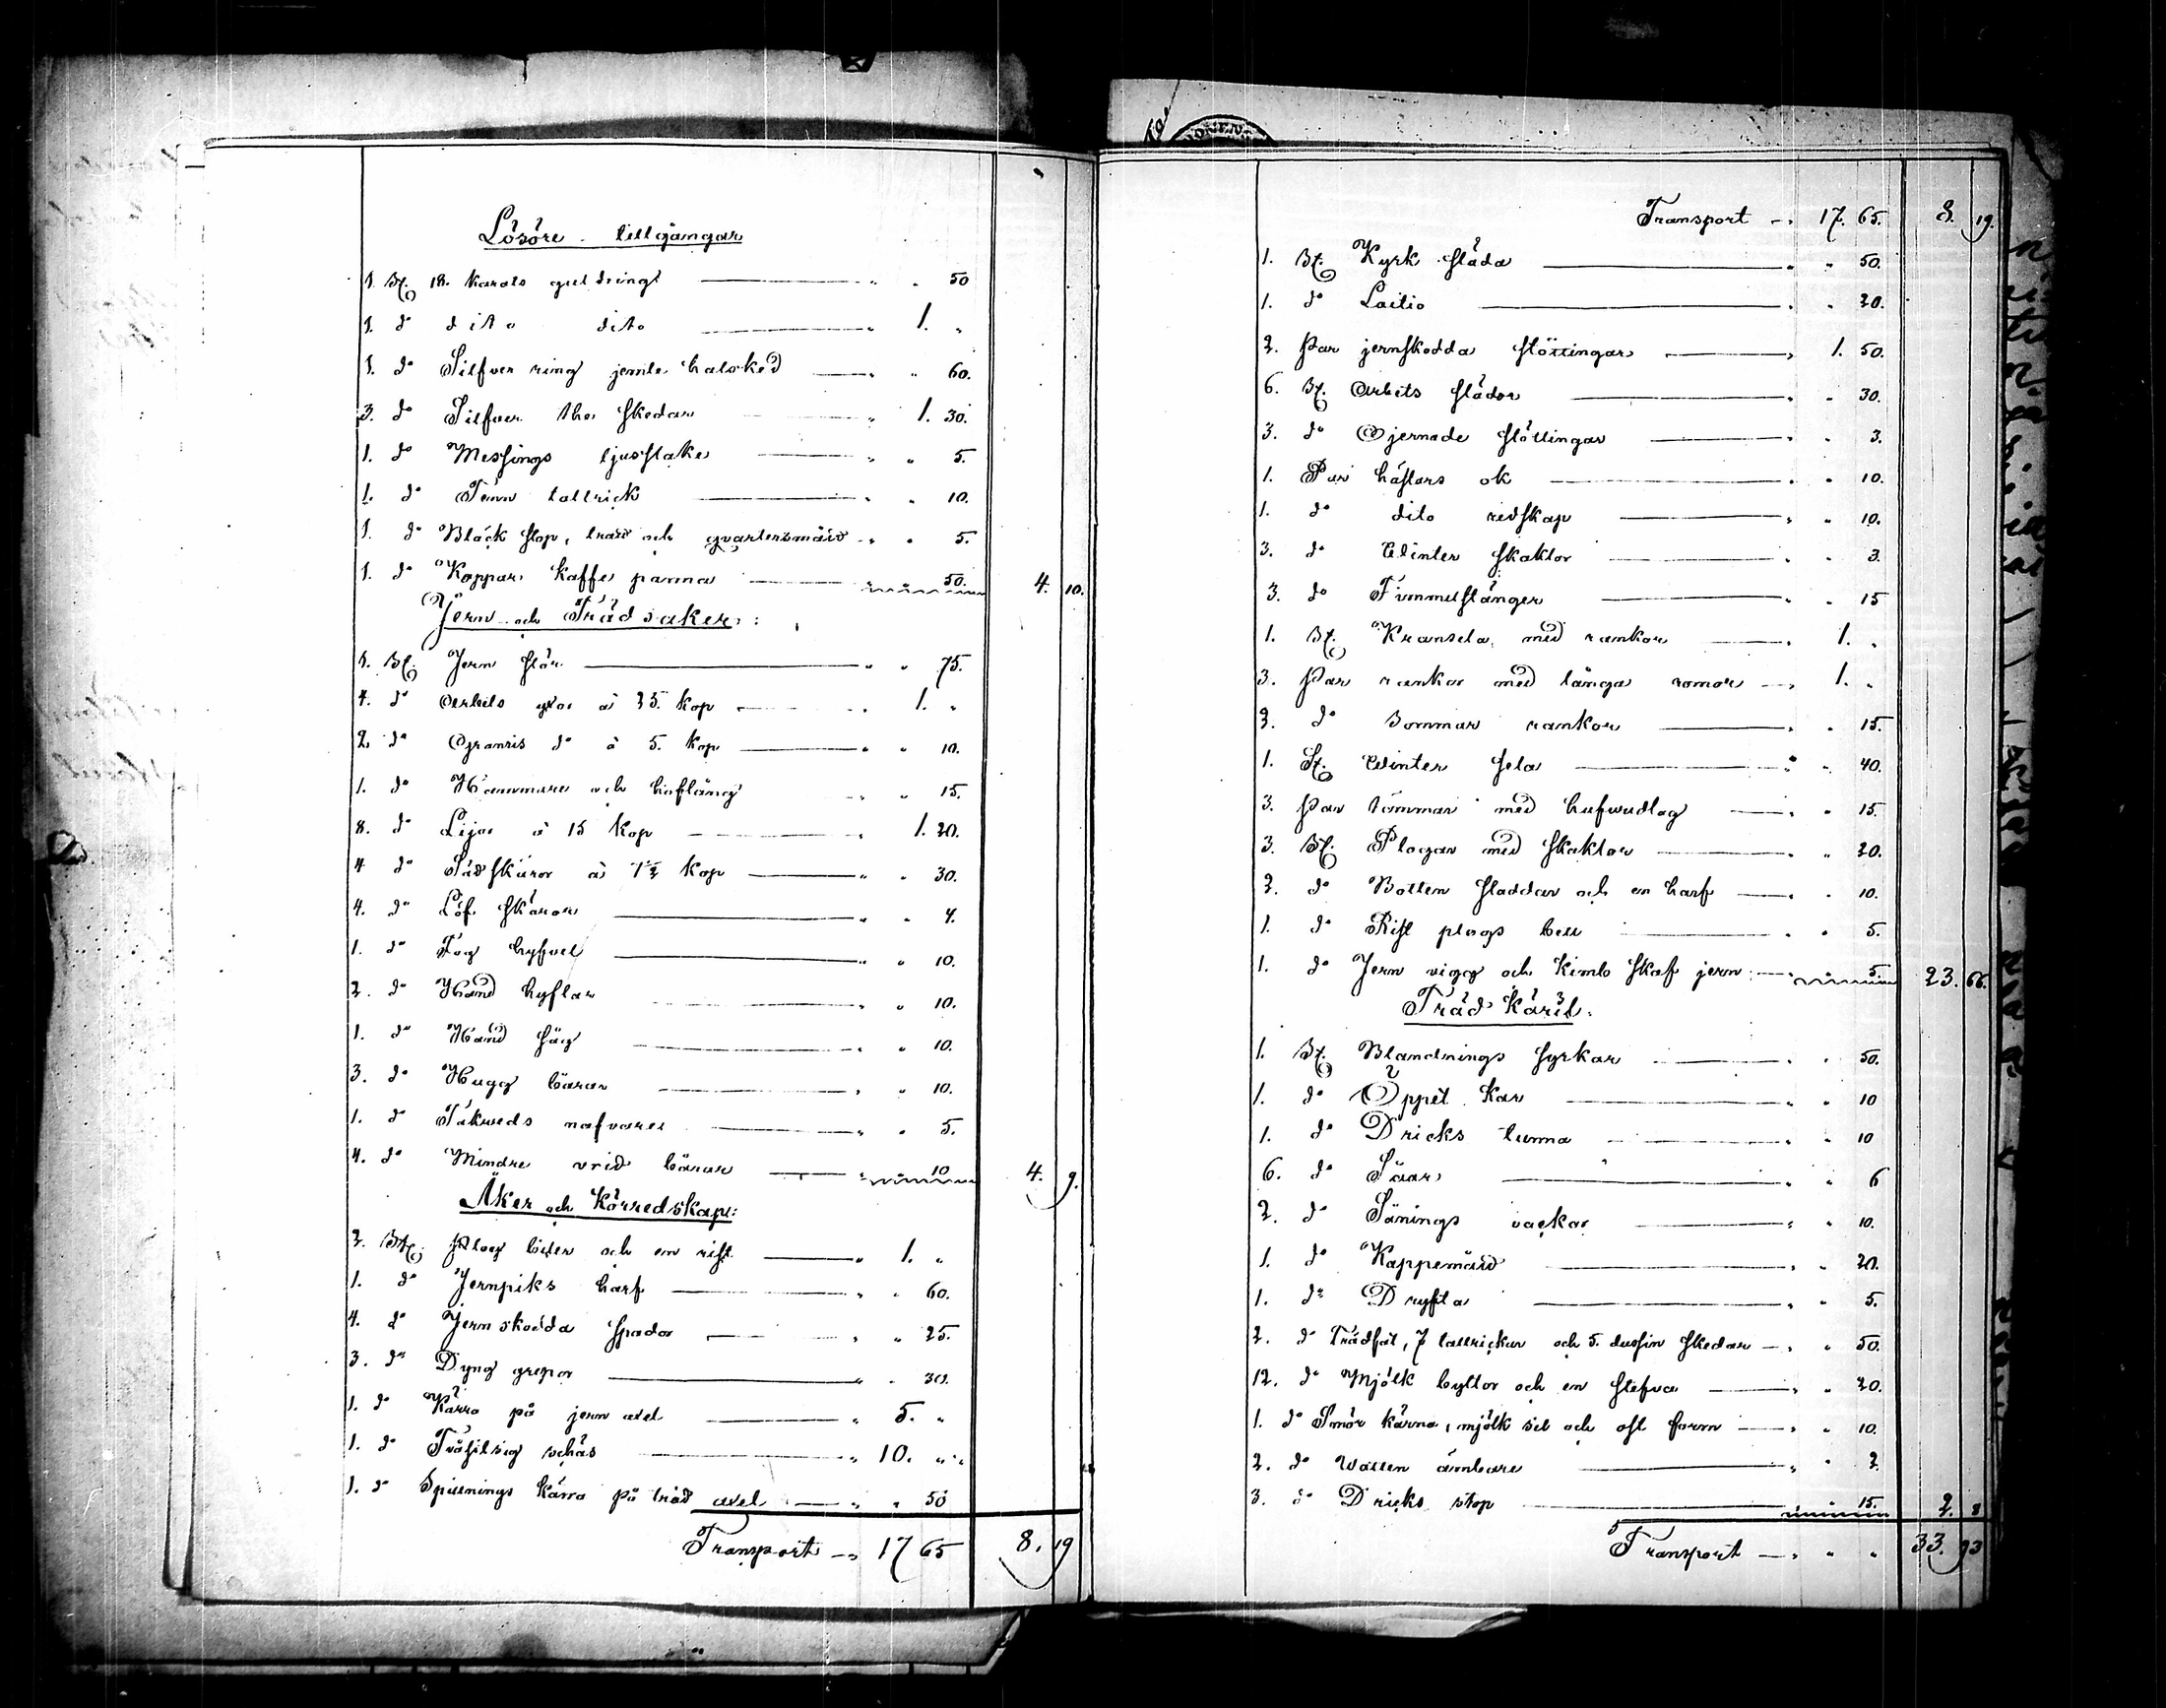 Lösöre tillgångar
1. St. 18. karats guldringt " " 50
1. do dito dito " 1. "
1. do Silfver ring jemte halsked " " 60.
3. do Silfver the skedar " 1. 30.
1. do Messings ljusstake " " 5.
1. do Tenn tallrick " " 10.
1. do Bläck stop, tratt och qvartersmått " " 5.
1. do Koppar kaffe panna " " 50. 4. 10.
Jern och Träd saker:
1. St. Jern stör " " 75.
4. do Arbets yxor à 25. kop " 1. "
2. do Granris do à 5. kop " " 10.
1. do Hammare och hoftång " " 15.
8. do Lijor à 15 kop " 1. 20.
4 do Sädskäror à 7½ kop " " 30.
4. do Löf skäror " " 4.
1. do Fog hyfvel " " 10.
2. do Hand hyflar " " 10.
1. do Hand såg " " 10.
3. do Hugg bärar " " 10.
1. do Takveds nafvare " " 5.
4. do Mindre vrid bärar " " 10 4. 9.
Åker och Körredskap:
2. St. Plog biller och en rist " 1. "
1. do Jernpiks harf " " 60.
4. do Jernskodda spador " " 25.
3. do Dyng grepar " " 30.
1. do Kärra på jern axel " 5. "
1. do Tvåsitsig schäs " 10. "
1. do Spillnings kärra på träd axel " " 50
Transport " 17 65 8. 19
Transport " 17. 65. 8. 19.
1. St. Kyrk släda " " 50.
1. do Laitio " " 20.
2. Par jernskodda stöttingar " 1. 50.
6. St. Arbets slädor " " 30.
3. do Ojernade stöttingar " " 3.
1. Par hästars ok " " 10.
1. do dito redskap " " 10.
3. do Winter skaklor " " 3.
3. do Fimmelstänger " " 15
1. St. Kransela med rankor " 1. "
3. Par rankor med långa romor " 1. "
2. do Sommar rankor " " 15.
1. St. Winter sela " " 40.
3. Par tömmar med hufwudlag " " 15.
3. St. Plogar med skaklor " " 20.
2. do Botten sladdar och en harf " " 10.
1. do Rist plogs bill " " 5.
1. do Jern vigg och Kimb skaf jern " " 5. 23. 66.
Träd Käril:
1. St. Blandnings fyrkar " " 50.
1. do Öppit Kar " " 10
1. do Dricks tunna " " 10
6. do Såar " " 6
2. do Sånings vackor " " 10.
1. do Kappemått " " 20.
1. do Dryfta " " 5.
2. do Trädfat, 7 tallrickar och 5. dussin skedar " " 50.
12. do Mjölk byttor och en stefva " " 20.
1. do Smör kärna, mjölk sil och ost form " " 10.
2. do Watten ämbare " " 2.
3. do Dricks stop " " 15. 2. 8
Transport " " " 33. 93